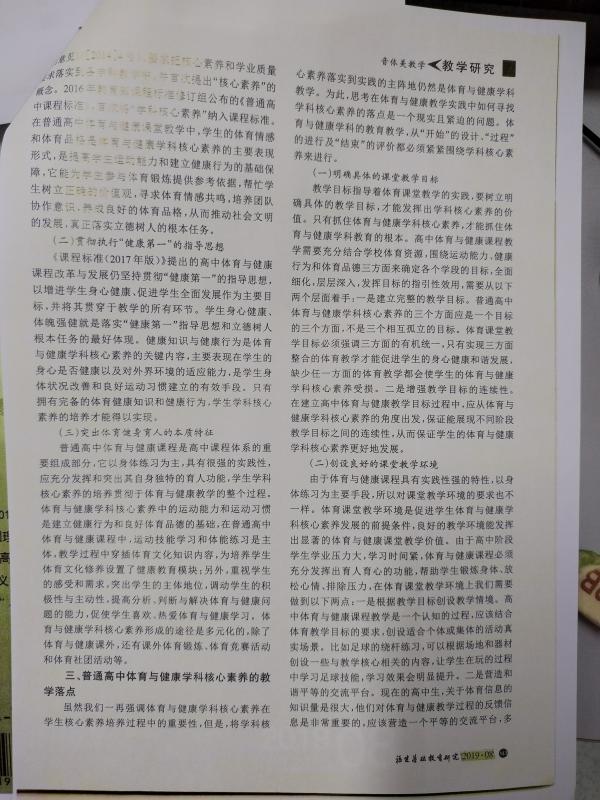 音体美教学
教学研究
意见
核心素养和学业质量
求落实到各学科教学中，并首次提出“核心素养”的
概念。2016年教育部课程标准修订组公布的《普通高
中课程标准》，首次将“学科核心素养”纳入课程标准。
在普通高中体育与健康课堂教学中，学生的体育情感
和体育品格是体育与健康学科核心素养的主要表现
形式，是提高学生运动能力和建立健康行为的基础保
障，它能为学生参与体育锻炼提供参考依据，帮忙学
生树立正确的价值观，寻求体育情感共鸣，培养团队
协作意识，养成良好的体育品格，从而推动社会文明
的发展，真正落实立德树人的根本任务。
（二）贯彻执行“健康第一”的指导思想
《课程标准（2017年版）》提出的高中体育与健康
课程改革与发展仍坚持贯彻“健康第一”的指导思想，
以增进学生身心健康、促进学生全面发展作为主要目
标，并将其贯穿于教学的所有环节。学生身心健康、
体魄强健就是落实“健康第一”指导思想和立德树人
根本任务的最好体现。健康知识与健康行为是体育
与健康学科核心素养的关键内容，主要表现在学生的
身心是否健康以及对外界环境的适应能力，是学生身
体状况改善和良好运动习惯建立的有效手段。只有
拥有完备的体育健康知识和健康行为，学生学科核心
素养的培养才能得以实现。
（三）突出体育健身育人的本质特征
普通高中体育与健康课程是高中课程体系的重
要组成部分，它以身体练习为主，具有很强的实践性，
应充分发挥和突出其自身独特的育人功能，学生学科
核心素养的培养贯彻于体育与健康教学的整个过程，
体育与健康学科核心素养中的运动能力和运动习惯
是建立健康行为和良好体育品德的基础，在普通高中
体育与健康课程中，运动技能学习和体能练习是主
体，教学过程中穿插体育文化知识内容，为培养学生
体育文化修养设置了健康教育模块；另外，重视学生
的感受和需求，突出学生的主体地位，调动学生的积
极性与主动性，提高分析、判断与解决体育与健康问
题的能力，促使学生喜欢、热爱体育与健康学习。体
育与健康学科核心素养形成的途径是多元化的，除了
体育与健康课外，还有课外体育锻炼、体育竞赛活动
和体育社团活动等。
三、普通高中体育与健康学科核心素养的教
学落点
虽然我们一再强调体育与健康学科核心素养在
学生核心素养培养过程中的重要性，但是，将学科核
心素养落实到实践的主阵地仍然是体育与健康学科
教学。为此，思考在体育与健康教学实践中如何寻找
学科核心素养的落点是一个现实且紧迫的问题。体
育与健康学科的教育教学，从“开始”的设计、“过程”
的进行及“结束”的评价都必须紧紧围绕学科核心素
养来进行。
（一）明确具体的课堂教学目标
教学目标指导着体育课堂教学的实践，要树立明
确具体的教学目标，才能发挥出学科核心素养的价
值。只有抓住体育与健康学科核心素养，才能抓住体
育与健康学科教育的根本。高中体育与健康课程教
学需要充分结合学校体育资源，围绕运动能力、健康
行为和体育品德三方面来确定各个学段的目标，全面
细化，层层深入，发挥目标的指引性效用，需要从以下
两个层面着手：一是建立完整的教学目标。普通高中
体育与健康学科核心素养的三个方面应是一个目标
的三个方面，不是三个相互孤立的目标。体育课堂教
学目标必须强调三方面的有机统一，只有实现三方面
整合的体育教学才能促进学生的身心健康和谐发展，
缺少任一方面的体育教学都会使学生的体育与健康
学科核心素养受损。二是增强教学目标的连续性。
在建立高中体育与健康教学目标过程中，应从体育与
健康学科核心素养的角度出发，保证能展现不同阶段
教学目标之间的连续性，从而保证学生的体育与健康
学科核心素养更好地发展。
（二）创设良好的课堂教学环境
由于体育与健康课程具有实践性强的特性，以身
体练习为主要手段，所以对课堂教学环境的要求也不
一样。体育课堂教学环境是促进学生体育与健康学
科核心素养发展的前提条件，良好的教学环境能发挥
出显著的体育与健康课堂教学价值。由于高中阶段
学生学业压力大，学习时间紧，体育与健康课程必须
充分发挥出育人育心的功能，帮助学生锻炼身体、放
松心情、排除压力，在体育课堂教学环境上我们需要
做到以下两点：一是根据教学目标创设教学情境。高
中体育与健康课程教学是一个认知的过程，应该结合
体育教学目标的要求，创设适合个体或集体的活动真
实场景。比如足球的绕杆练习，可以根据场地和器材
创设一些与教学核心相关的内容，让学生在玩的过程
中学习足球技能，学习效果会明显提升。二是营造和
谐平等的交流平台。现在的高中生，关于体育信息的
知识量是很大，他们对体育与健康教学过程的反馈信
息是非常重要的，应该营造一个平等的交流平台，多
福建基础教育研究 2019·08